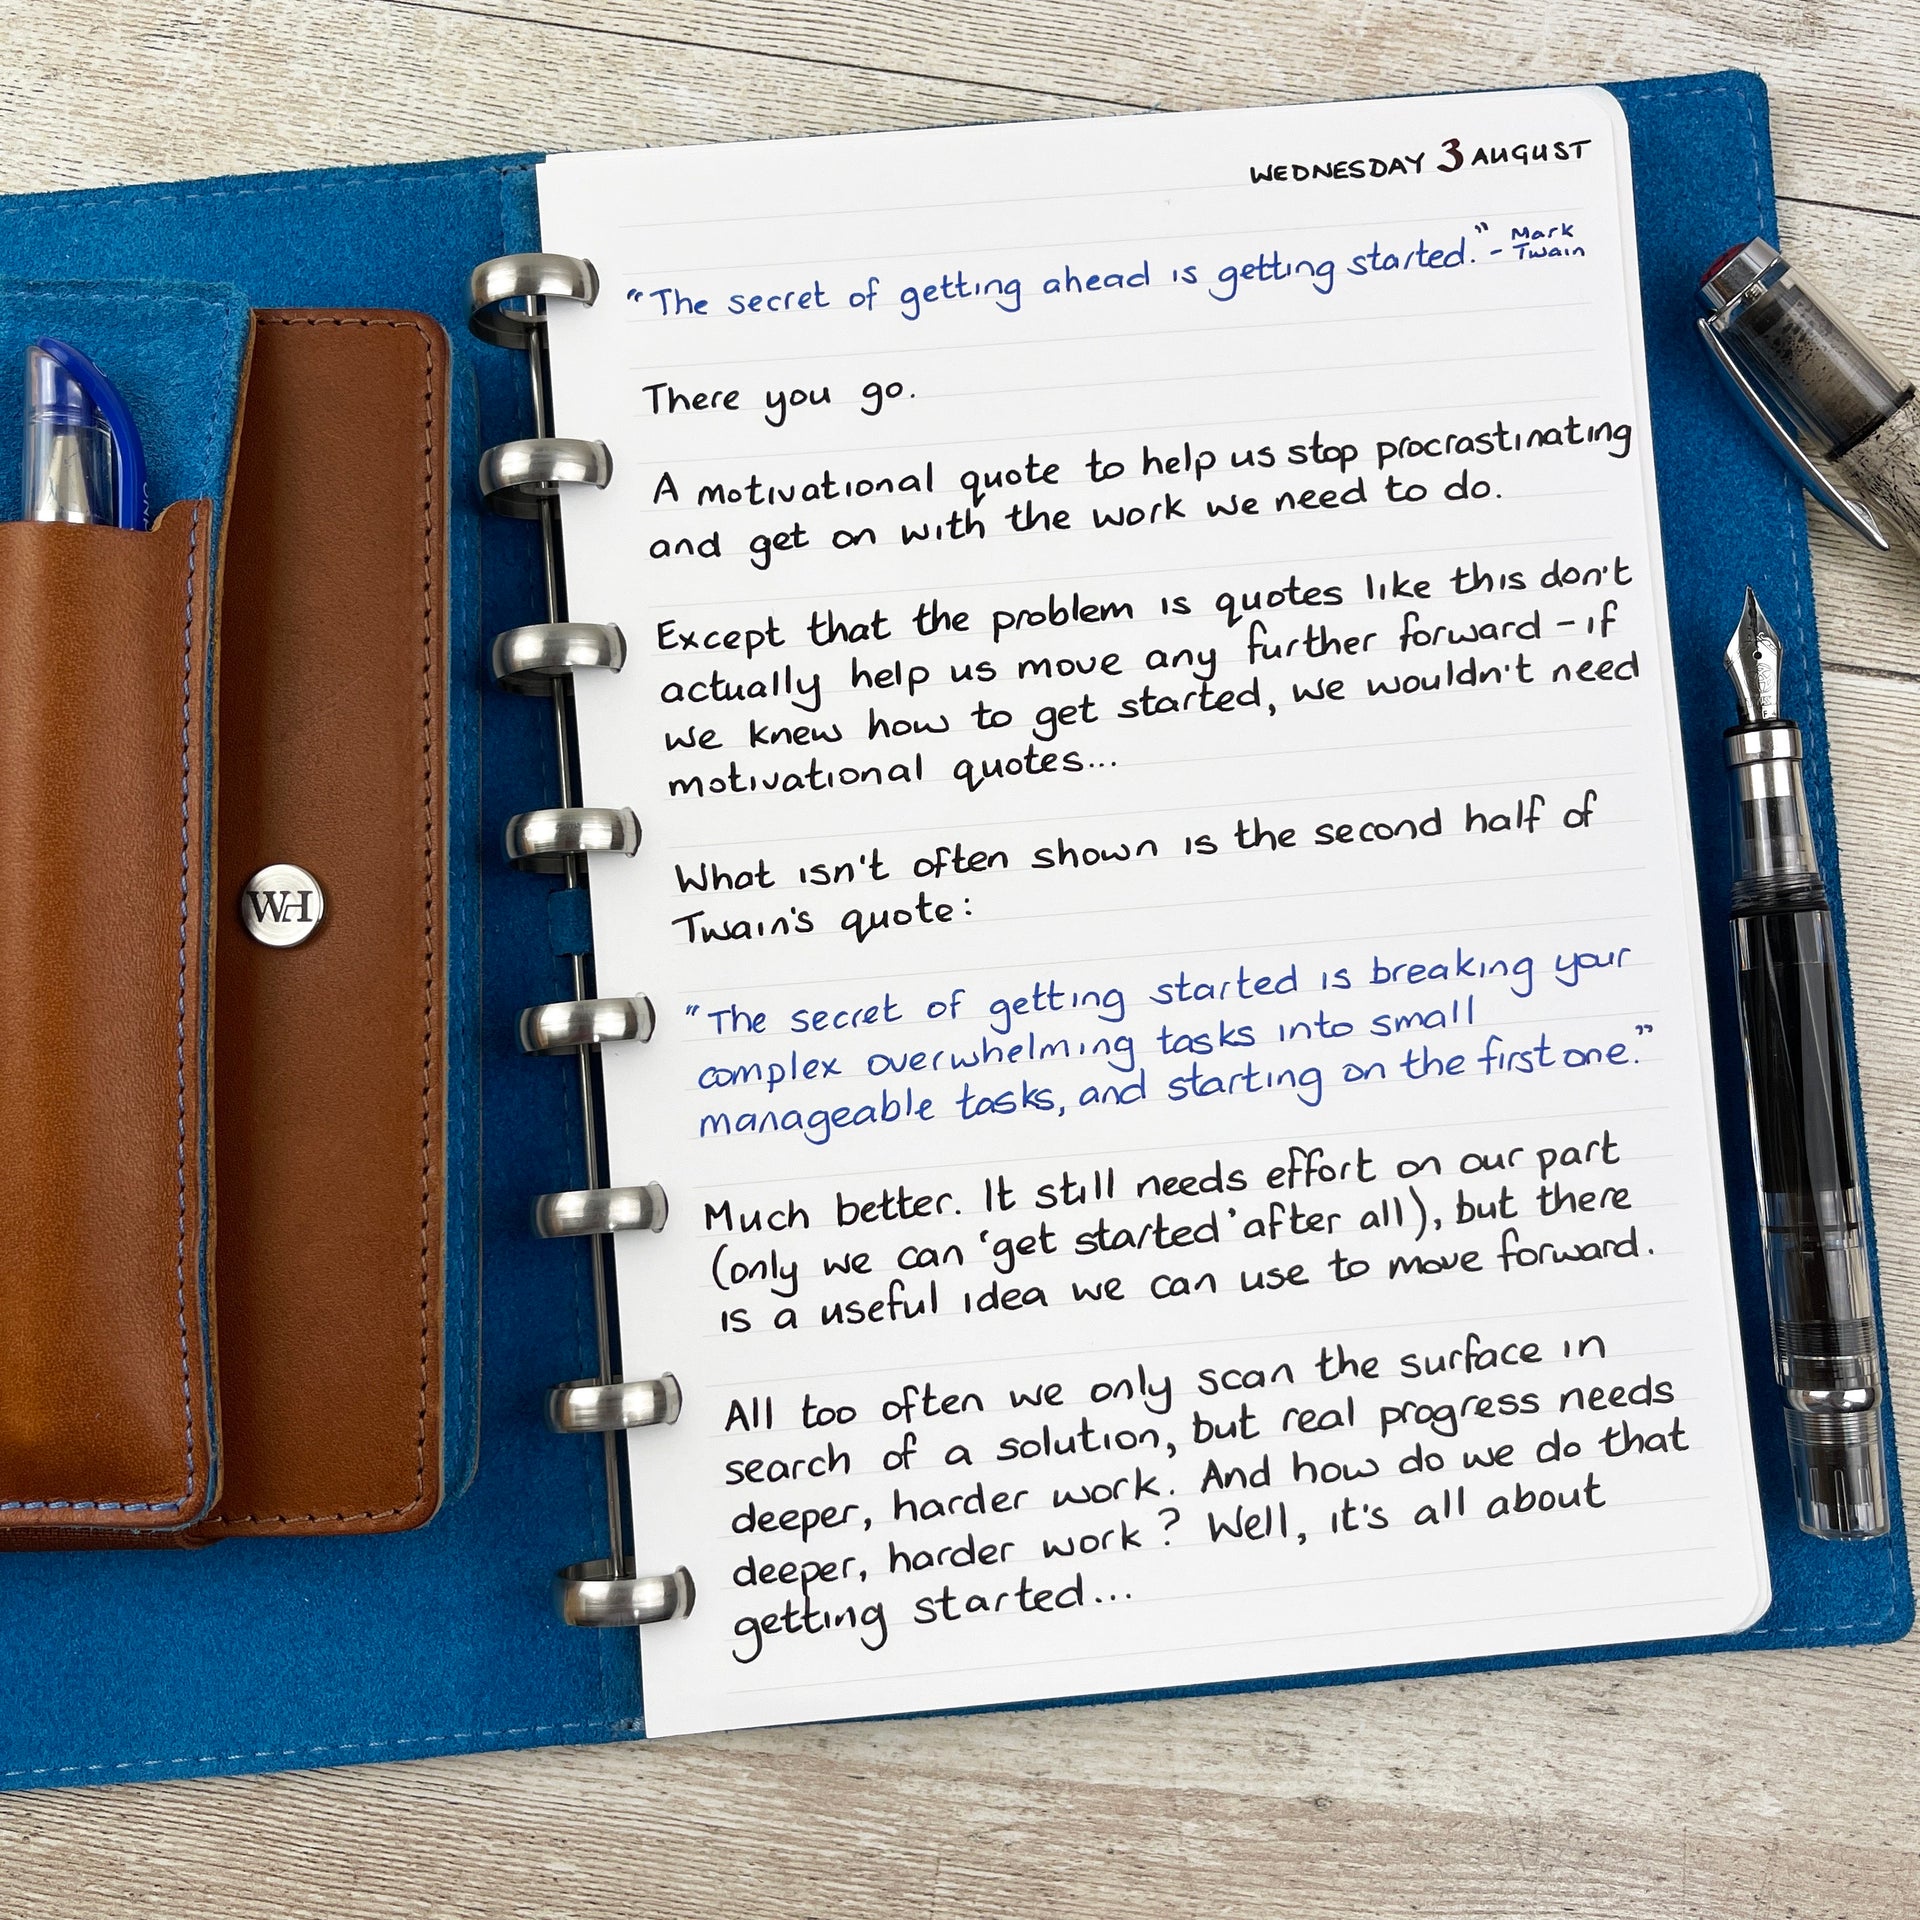 WEDNESDAY 3 AUGUST
"The secret of getting ahead is getting started." - Mark Twain
There you go.
A motivational quote to help us stop procrastinating
and get on with the work we need to do.
Except that the problem is quotes like this don't
actually help us move any further forward – if
we knew how to get started, we wouldn't need
motivational quotes...
What isn't often shown is the second half of
Twain's quote:
"The secret of getting started is breaking your
complex overwhelming tasks into small
manageable tasks, and starting on the first one."
Much better. It still needs effort on our part
(only we can 'get started' after all), but there
is a useful idea we can use to move forward.
All too often we only scan the surface in
search of a solution, but real progress needs
deeper, harder work. And how do we do that
deeper, harder work? Well, it's all about
getting started...
WH